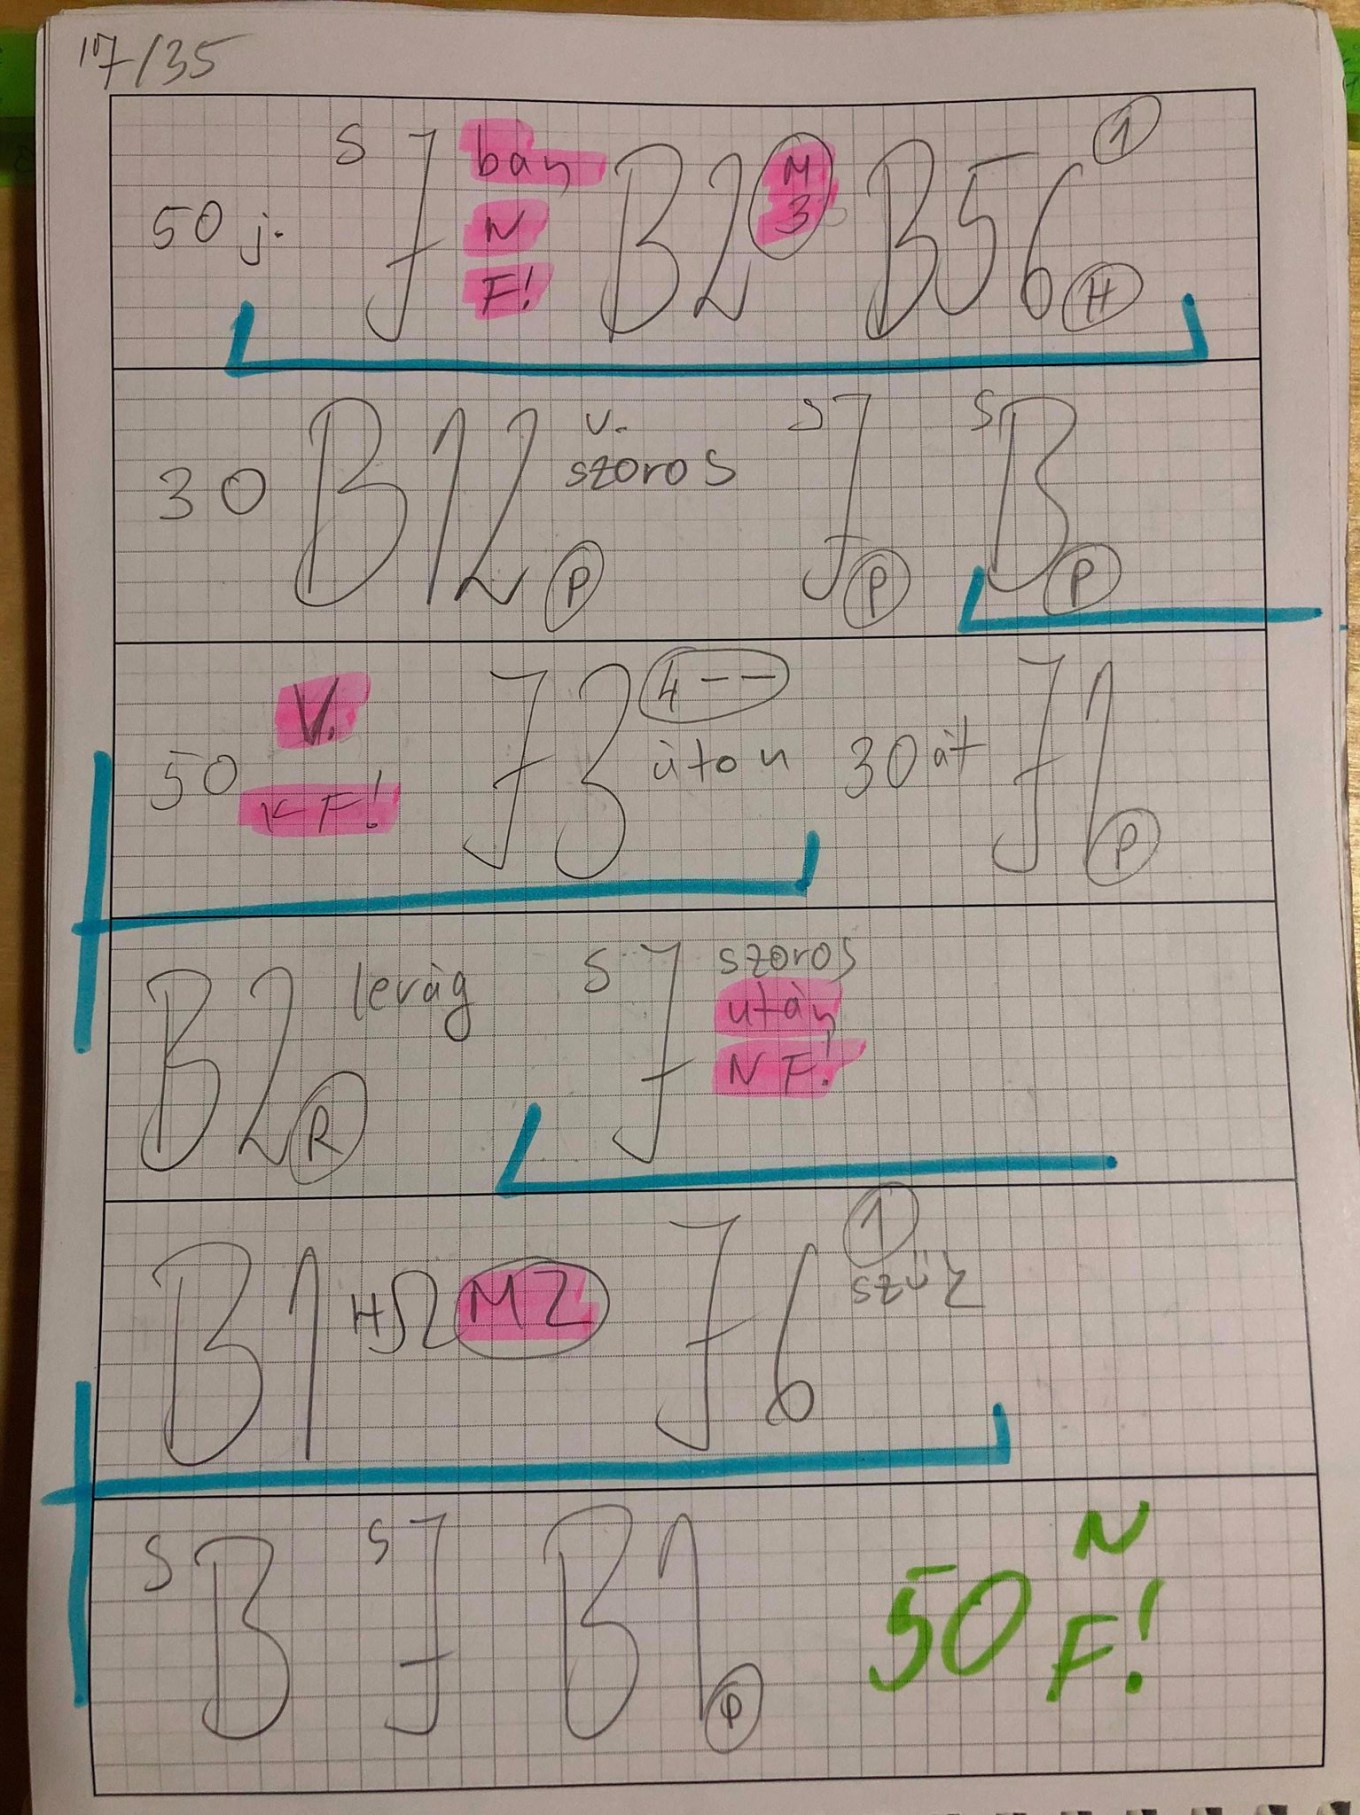 17/35
50 j. S J bán N F! B2 M3 B56 1 H
30 B12 P v. szoros S J P S B P
50 V. KF! J3 4-- úton 30 át J1 P
B2 R levág S J szoros után NF!
B1 HΩ M2 J6 1 szűz
S B S J B1 P 50 N F!